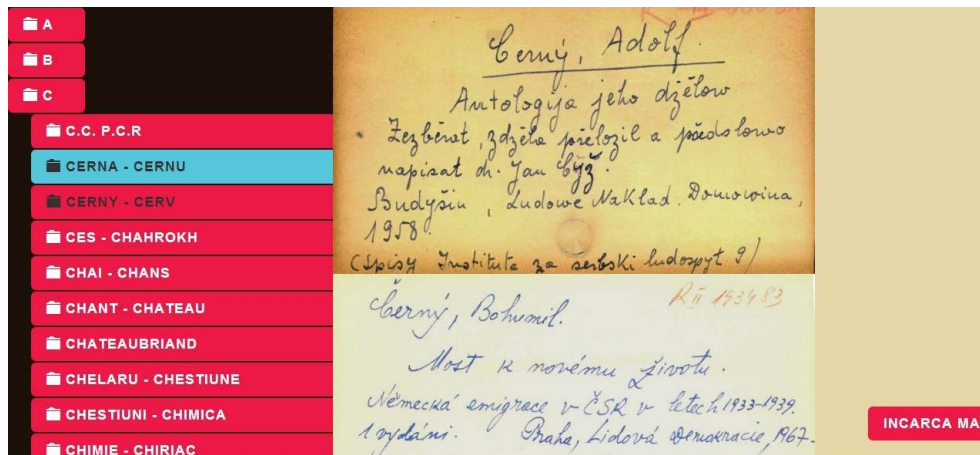 A
B
C
C.C. P.C.R
CERNA - CERNU
CERNY - CERV
CES - CHAHROKH
CHAI - CHANS
CHANT - CHATEAU
CHATEAUBRIAND
CHELARU - CHESTIUNE
CHESTIUNI - CHIMICA
CHIMIE - CHIRIAC
Černý, Adolf.
Antologija jeho dźěłow
Zezběrał, zdźěla přełožil a předsłowo
napisał dr. Jan Cyž.
Budyšin, Ludowe Nakład. Domowina,
1958.
(Spisy Instituta za serbski ludospyt 9)
R II 193483
Černý, Bohumil.
Most k novému životu.
Německá emigrace v ČSR v letech 1933-1939.
1 vydáni. Praha, Lidová Demokracie, 1967-
INCARCA MA